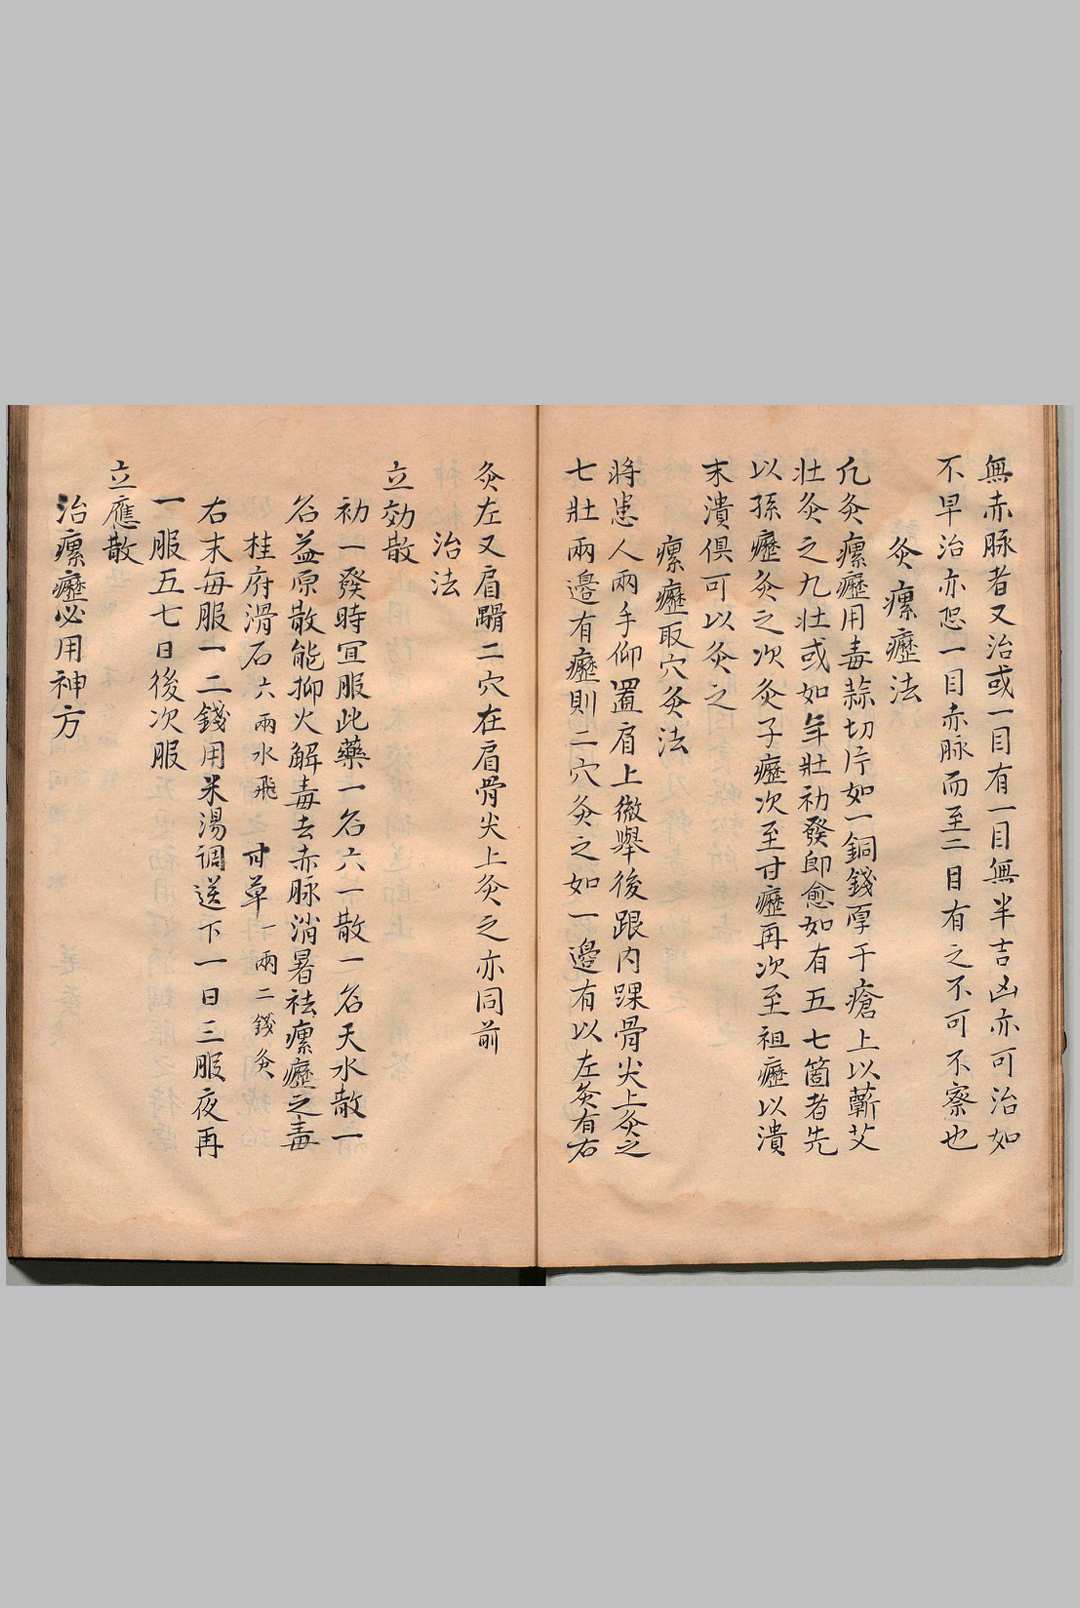 無赤脉者又治或一目有一目無半吉凶亦可治如
不早治亦恐一目赤脉而至二目有之不可不察也
灸瘰癧法
凢灸瘰癧用毒蒜切片如一銅錢厚于瘡上以蘄艾
壯灸之九壯或如年壯初發即愈如有五七箇者先
以孫癧灸之次灸子癧次至甘癧再次至祖癧以潰
末潰俱可以灸之
瘰癧取穴灸法
將患人兩手仰置肩上微舉後跟内踝骨尖上灸之
七壯兩邊有癧則二穴灸之如一邊有以左灸右右
灸左又肩髃二穴在肩骨尖上灸之亦同前
治法
立効散
初一發時宜服此藥一名六一散一名天水散一
名益原散能抑火解毒去赤脉消暑祛瘰癧之毒
桂府滑石六兩水飛 甘草一兩二錢灸
右末每服一二錢用米湯調送下一日三服夜再
一服五七日後次服
立應散
治瘰癧必用神方